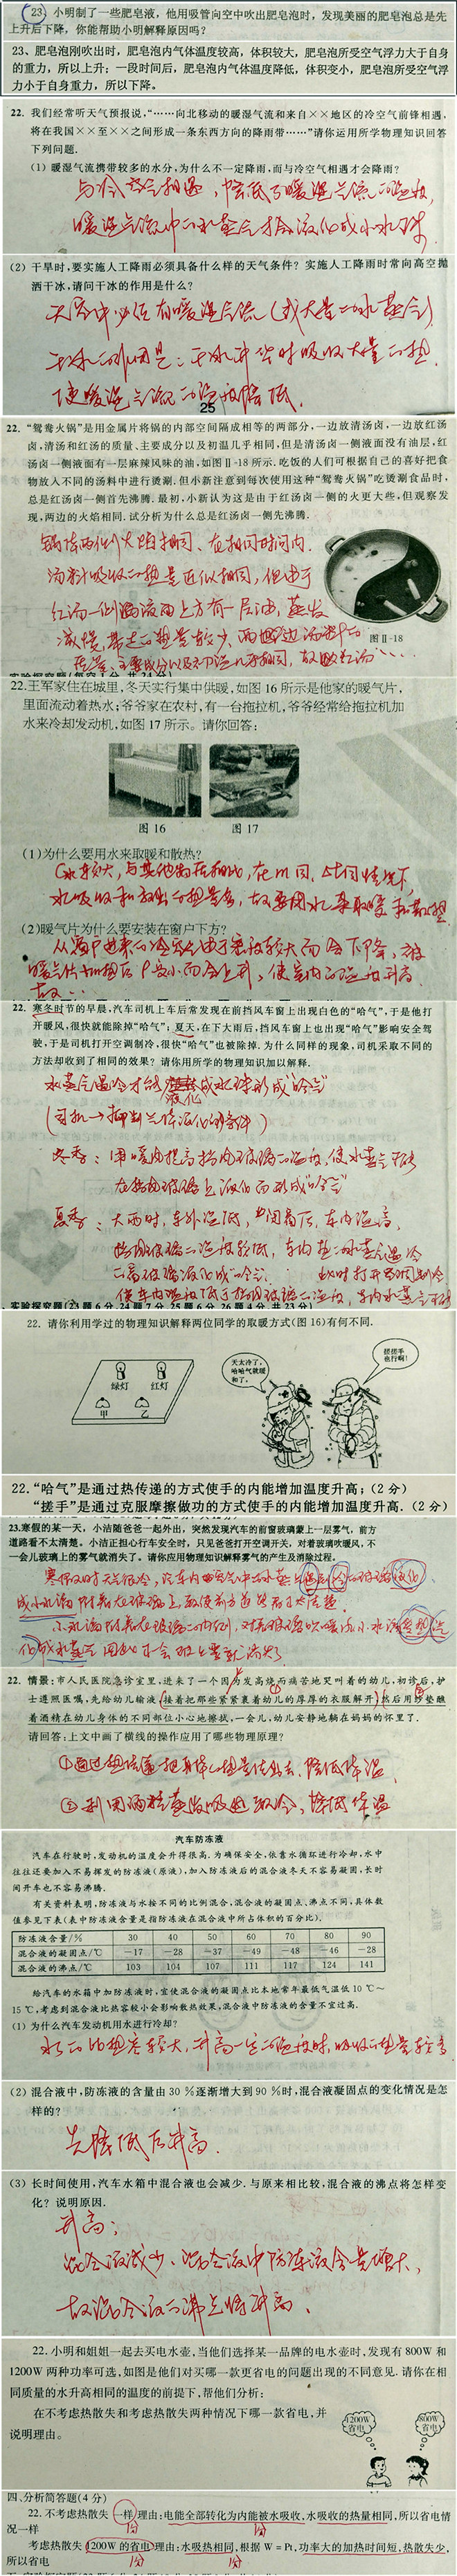 23. 小明制了一些肥皂液，他用吸管向空中吹出肥皂泡时，发现美丽的肥皂泡总是先
上升后下降，你能帮助小明解释原因吗？
23、肥皂泡刚吹出时，肥皂泡内气体温度较高，体积较大，肥皂泡所受空气浮力大于自身
的重力，所以上升；一段时间后，肥皂泡内气体温度降低，体积变小，肥皂泡所受空气浮
力小于自身重力，所以下降。
22. 我们经常听天气预报说，“……向北移动的暖湿气流和来自××地区的冷空气前锋相遇，
将在我国××至××之间形成一条东西方向的降雨带……”请你运用所学物理知识回答
下列问题.
(1) 暖湿气流携带较多的水分，为什么不一定降雨，而与冷空气相遇才会降雨？
与冷空气相遇，降低了暖湿气流的温度，
暖湿气流中的水蒸气才会液化成小水珠.
(2) 干旱时，要实施人工降雨必须具备什么样的天气条件？实施人工降雨时常向高空抛
洒干冰，请问干冰的作用是什么？
天空中必须有暖湿气流(或大量的水蒸气)
干冰的作用是：干冰升华时吸收大量的热，
使暖湿气流的温度降低.
25
22. “鸳鸯火锅”是用金属片将锅的内部空间隔成相等的两部分，一边放清汤卤，一边放红汤
卤，清汤和红汤的质量、主要成分以及初温几乎相同，但是清汤卤一侧液面没有油层，红
汤卤一侧液面有一层麻辣风味的油，如图Ⅱ-18所示. 吃饭的人们可根据自己的喜好把食
物放入不同的汤料中进行烫涮. 但小新注意到每次使用这种“鸳鸯火锅”吃烫涮食品时，
总是红汤卤一侧首先沸腾. 最初，小新认为这是由于红汤卤一侧的火更大些，但观察发
现，两边的火焰相同. 试分析为什么总是红汤卤一侧先沸腾.
锅底两侧火焰相同、在相同时间内.
汤料吸收的热量近似相同，但由于
红汤一侧液面上方有一层油，蒸发
减慢带走的热量较少，两边汤料的
质量、主要成分以及初温几乎相同，故
图Ⅱ-18
22. 王军家住在城里，冬天实行集中供暖，如图 16 所示是他家的暖气片，
里面流动着热水；爷爷家在农村，有一台拖拉机，爷爷经常给拖拉机加
水来冷却发动机，如图 17 所示。请你回答：
图 16 图 17
(1)为什么要用水来取暖和散热？
C水较大，与其他物质相比，在m同，△t同情况下，
水吸收和放出的热量多，故要用水来取暖和散热
(2)暖气片为什么要安装在窗户下方？
从窗户进来的冷空气由于密度较大而会下降，被
暖气片加热后ρ变小而会上升，使室内的温度升高.
故…
22. 寒冬时节的早晨，汽车司机上车后常发现在前挡风车窗上出现白色的“哈气”，于是他打
开暖风，很快就能除掉“哈气”；夏天，在下大雨后，挡风车窗上也出现“哈气”影响安全驾
驶，于是司机打开空调制冷，很快“哈气”也被除掉. 为什么同样的现象，司机采取不同的
方法却收到了相同的效果？请你用所学的物理知识加以解释.
水蒸气遇冷才能液化成水珠形成“哈气”
(司机→抑制气体液化的条件)
冬季：用暖风提高挡风玻璃的温度，使水蒸气不能
在挡风玻璃上液化而形成“哈气”
夏季：大雨时，车外温低，关闭窗后，车内温高，
挡风玻璃的温度较低，车内热的水蒸气遇冷
的玻璃液化成“哈气”. 此时打开空调制冷
使车内温度低于挡风玻璃的温度，车内水蒸气不能
实验探究题(23题6分，24题7分，25题6分，26题4分，共23分)
22. 请你利用学过的物理知识解释两位同学的取暖方式(图 16)有何不同.
绿灯 红灯
甲 乙
天太冷了，
哈哈气就暖
和了。
搓搓手
也行啊！
22. “哈气”是通过热传递的方式使手的内能增加温度升高；(2 分)
“搓手”是通过克服摩擦做功的方式使手的内能增加温度升高. (2 分)
23. 寒假的某一天，小洁随爸爸一起外出，突然发现汽车的前窗玻璃蒙上一层雾气，前方
道路看不太清楚。小洁正担心行车安全时，只见爸爸打开空调开关，对着玻璃吹暖风，不
一会儿玻璃上的雾气就消失了。请你应用物理知识解释雾气的产生及消除过程。
寒假的时天气很冷，汽车内空气中的水蒸气遇到冷的玻璃液化
成小水滴附着在玻璃上，
小水滴附着在玻璃的内侧，对着玻璃吹暖风小水滴
化成水蒸气
22. 情景：市人民医院急诊室里，进来了一个因为发高烧而痛苦地哭叫着的幼儿，初诊后，护
士遵照医嘱，先给幼儿输液(接着把那些紧紧裹着幼儿的厚厚的衣服解开)然后用纱垫醮
着酒精在幼儿身体的不同部位小心地擦拭，一会儿，幼儿安静地躺在妈妈的怀里了.
请回答：上文中画了横线的操作应用了哪些物理原理？
①通过热传递把身体的热量传出去、降低体温
②利用酒精蒸发吸热致冷，降低体温
汽车防冻液
汽车在行驶时，发动机的温度会升得很高. 为确保安全，依靠水循环进行冷却，水中
往往还要加入不易挥发的防冻液(原液)，加入防冻液后的混合液冬天不容易凝固，长时
间开车也不容易沸腾.
有关资料表明，防冻液与水按不同的比例混合，混合液的凝固点、沸点不同，具体数
值参见下表(表中防冻液含量是指防冻液在混合液中所占体积的百分比).
防冻液含量/% 30 40 50 60 70 80 90
混合液的凝固点/℃ −17 −28 −37 −49 −48 −46 −28
混合液的沸点/℃ 103 104 107 111 117 124 141
给汽车的水箱中加防冻液时，宜使混合液的凝固点比本地常年最低气温低 10 ℃～
15 ℃，考虑到混合液比热容较小会影响散热效果，混合液中防冻液的含量不宜过高.
(1) 为什么汽车发动机用水进行冷却？
水的比热容较大，升高一定的温度时，吸收的热量较多
(2) 混合液中，防冻液的含量由 30 %逐渐增大到 90 %时，混合液凝固点的变化情况是怎
样的？
先降低后升高.
(3) 长时间使用，汽车水箱中混合液也会减少. 与原来相比较，混合液的沸点将怎样变
化？说明原因.
升高；
混合液减少、混合液中防冻液含量增大，
故混合液的沸点将升高.
22. 小明和姐姐一起去买电水壶，当他们选择某一品牌的电水壶时，发现有 800W 和
1200W 两种功率可选，如图是他们对买哪一款更省电的问题出现的不同意见. 请你在相
同质量的水升高相同的温度的前提下，帮他们分析：
在不考虑热散失和考虑热散失两种情况下哪一款省电，并
说明理由。
1200W
省电
800W
省电
四、分析简答题(4 分)
22. 不考虑热散失 一样 理由：电能全部转化为内能被水吸收，水吸收的热量相同，所以省电情
况一样
1分 1分
考虑热散失 1200W 的省电 理由：水吸热相同，根据 W = Pt，功率大的加热时间短，热散失少，
所以省电 1分 1分